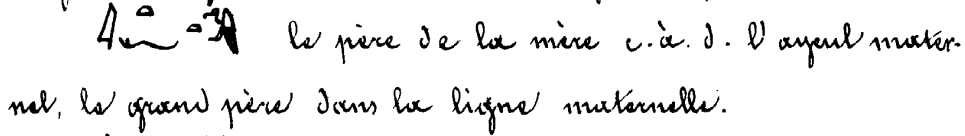 le père de la mère c. à. d. l'ayeul mater-
nel, le grand père dans la ligne maternelle.